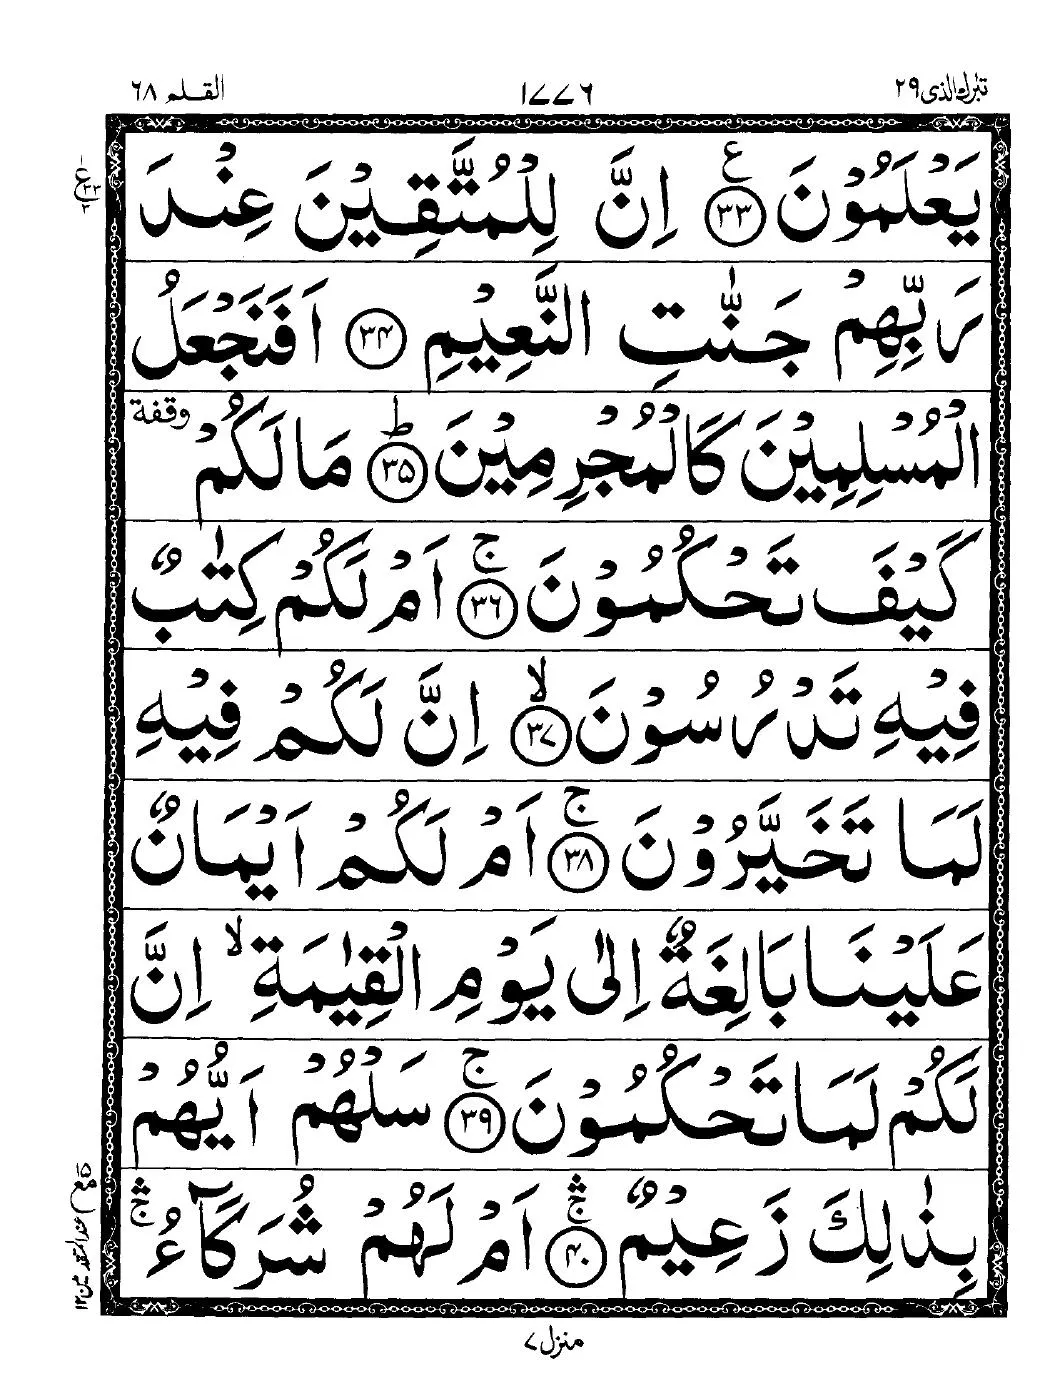 تبٰرك الذى ٢٩
١٧٧٦
القلم ٦٨
يَعْلَمُوْنَ ﴿٣٣﴾ ع اِنَّ لِلْمُتَّقِيْنَ عِنْدَ
رَبِّهِمْ جَنّٰتِ النَّعِيْمِ ﴿٣٤﴾ اَفَنَجْعَلُ
الْمُسْلِمِيْنَ كَالْمُجْرِمِيْنَ ﴿٣٥﴾ ط مَا لَكُمْ وقفة
كَيْفَ تَحْكُمُوْنَ ﴿٣٦﴾ ج اَمْ لَكُمْ كِتٰبٌ
فِيْهِ تَدْرُسُوْنَ ﴿٣٧﴾ لا اِنَّ لَكُمْ فِيْهِ
لَمَا تَخَيَّرُوْنَ ﴿٣٨﴾ ج اَمْ لَكُمْ اَيْمَانٌ
عَلَيْنَا بَالِغَةٌ اِلٰى يَوْمِ الْقِيٰمَةِ لا اِنَّ
لَكُمْ لَمَا تَحْكُمُوْنَ ﴿٣٩﴾ ج سَلْهُمْ اَيُّهُمْ
بِذٰلِكَ زَعِيْمٌ ﴿٤٠﴾ ۛۚ اَمْ لَهُمْ شُرَكَآءُ ۛۚ
منزل ٧